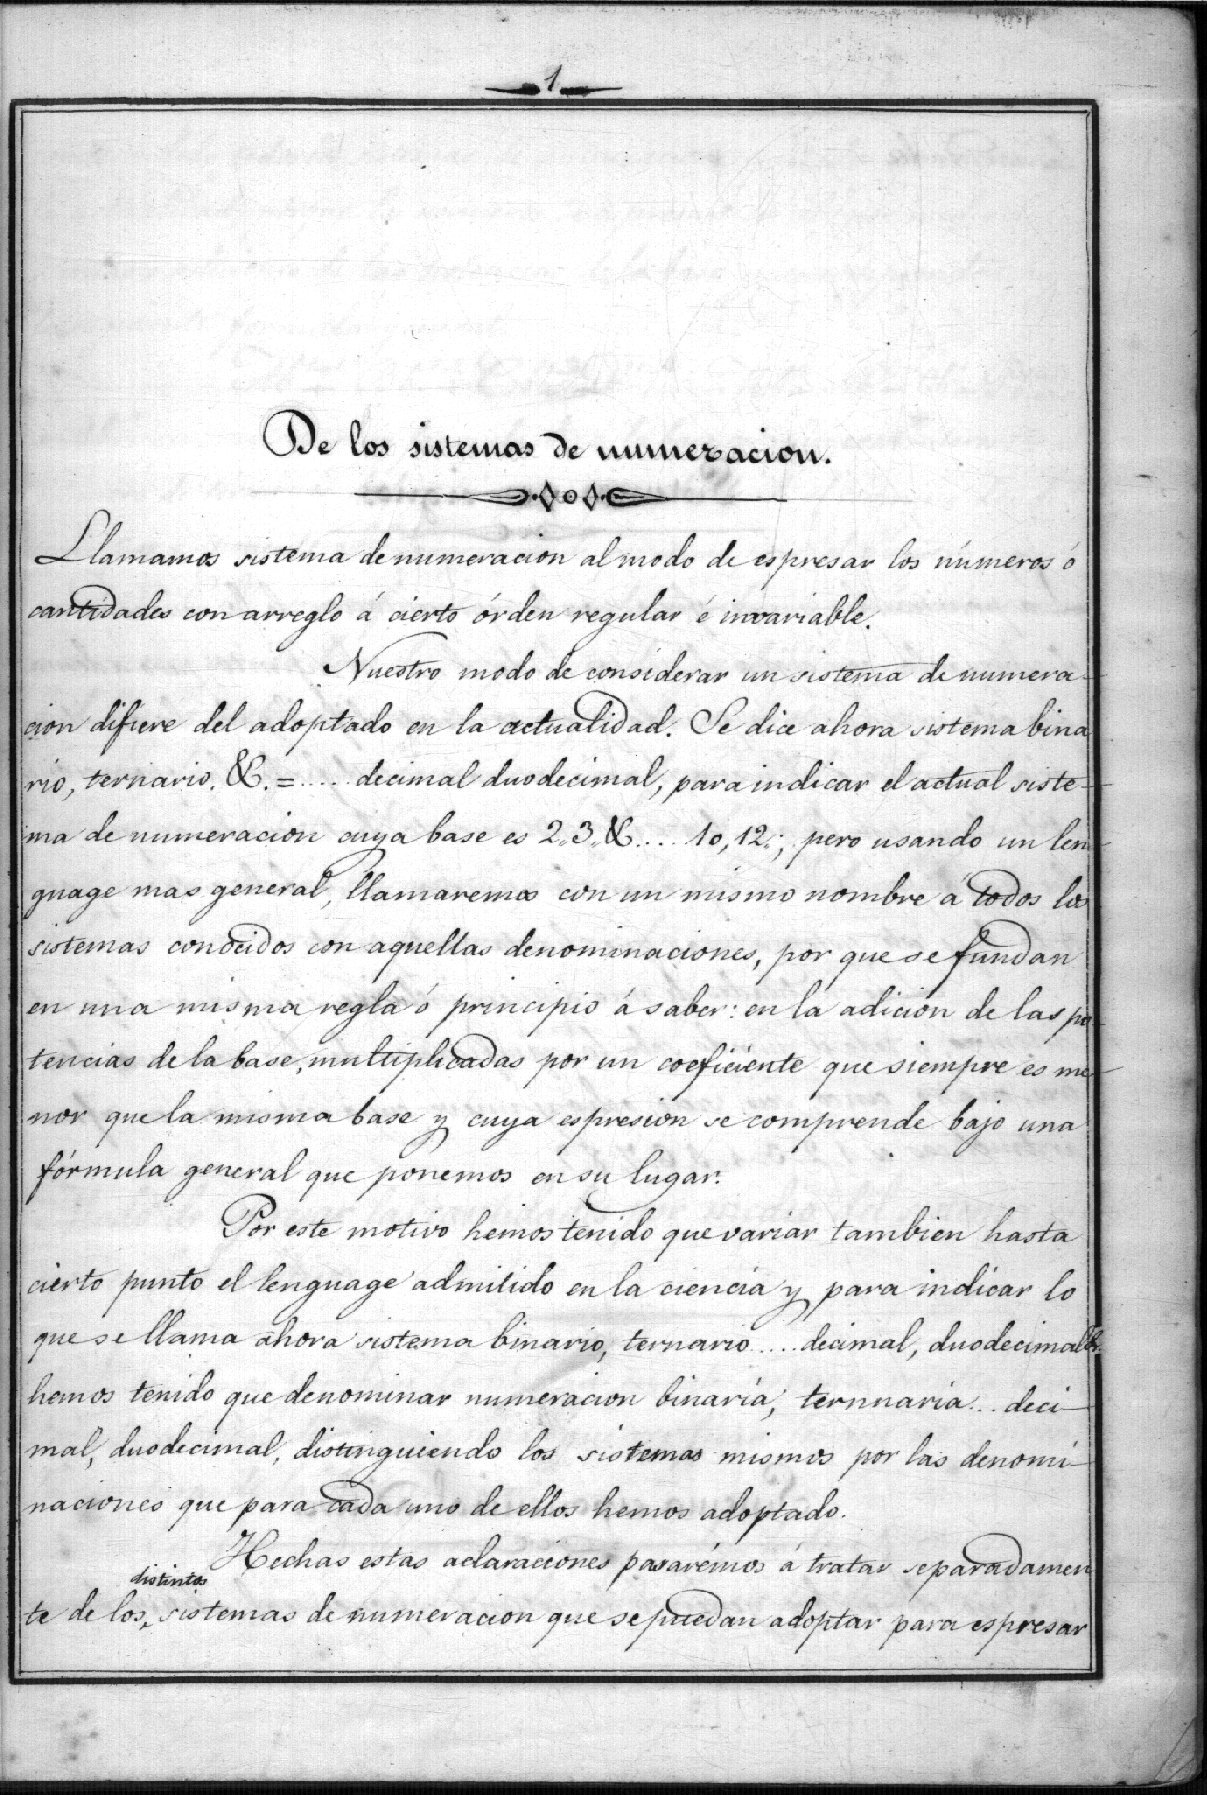 1
De los sistemas de numeracion.
Llamamos sistema de numeracion al modo de espresar los números ó
cantidades con arreglo á cierto órden regular é invariable.
Nuestro modo de considerar un sistema de numera-
cion difiere del adoptado en la actualidad. Se dice ahora sistema bina
rio, ternario. &. = ..... decimal duodecimal, para indicar el actual siste-
ma de numeracion cuya base es 2.,3.,&.... 10, 12.; pero usando un len-
guage mas general, llamaremos con un mismo nombre á todos los
sistemas conocidos con aquellas denominaciones, por que se fundan
en una misma regla ó principio á saber: en la adicion de las po-
tencias de la base, multiplicadas por un coeficiente que siempre es me-
nor que la misma base y cuya espresion se comprende bajo una
fórmula general que ponemos en su lugar.
Por este motivo hemos tenido que variar tambien hasta
cierto punto el lenguage admitido en la ciencia y para indicar lo
que se llama ahora sistema binario, ternario ..... decimal, duodecimal &.
hemos tenido que denominar numeracion binaria, ternnaria... deci-
mal, duodecimal, distinguiendo los sistemas mismos por las denomi-
naciones que para cada uno de ellos hemos adoptado.
Hechas estas aclaraciones pasarémos á tratar separadamen
distintos
te de los, sistemas de numeracion que se puedan adoptar para espresar